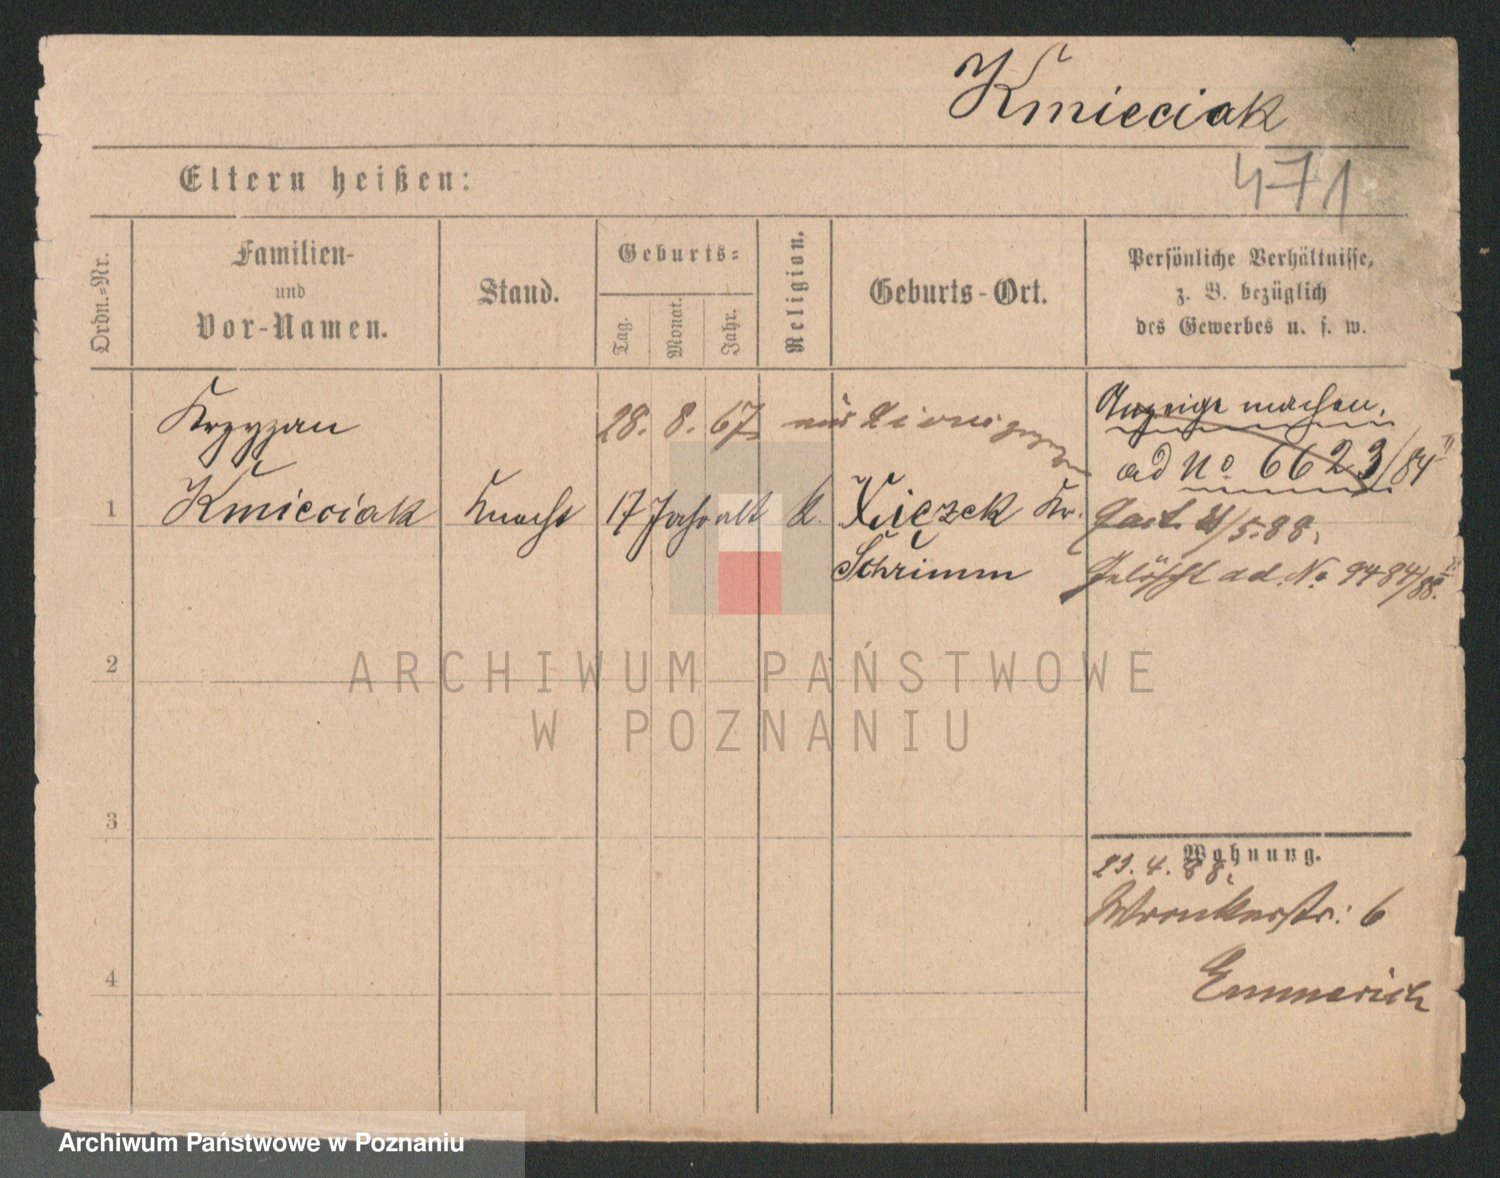 Kmieciak
471
Eltern heißen:
Ordn.-Nr.
Familien-
und
Vor-Namen.
Stand.
Geburts-
Tag.
Monat.
Jahr.
Religion.
Geburts-Ort.
Persönliche Verhältnisse,
z. B. bezüglich
des Gewerbes u. s. w.
Krzyzan
28. 8. 67
Anzeige machen.
ad No 6623/84
1
Kmieciak
Knecht
17 Jahr alt
k.
Xiezek Kr.
Schrimm
/5.88.
Gelöscht ad. No 9484/88.
2
3
4
Wohnung.
23. 4. 88.
Wronkerstr: 6
Emmerich
ARCHIWUM PAŃSTWOWE
W POZNANIU
Archiwum Państwowe w Poznaniu